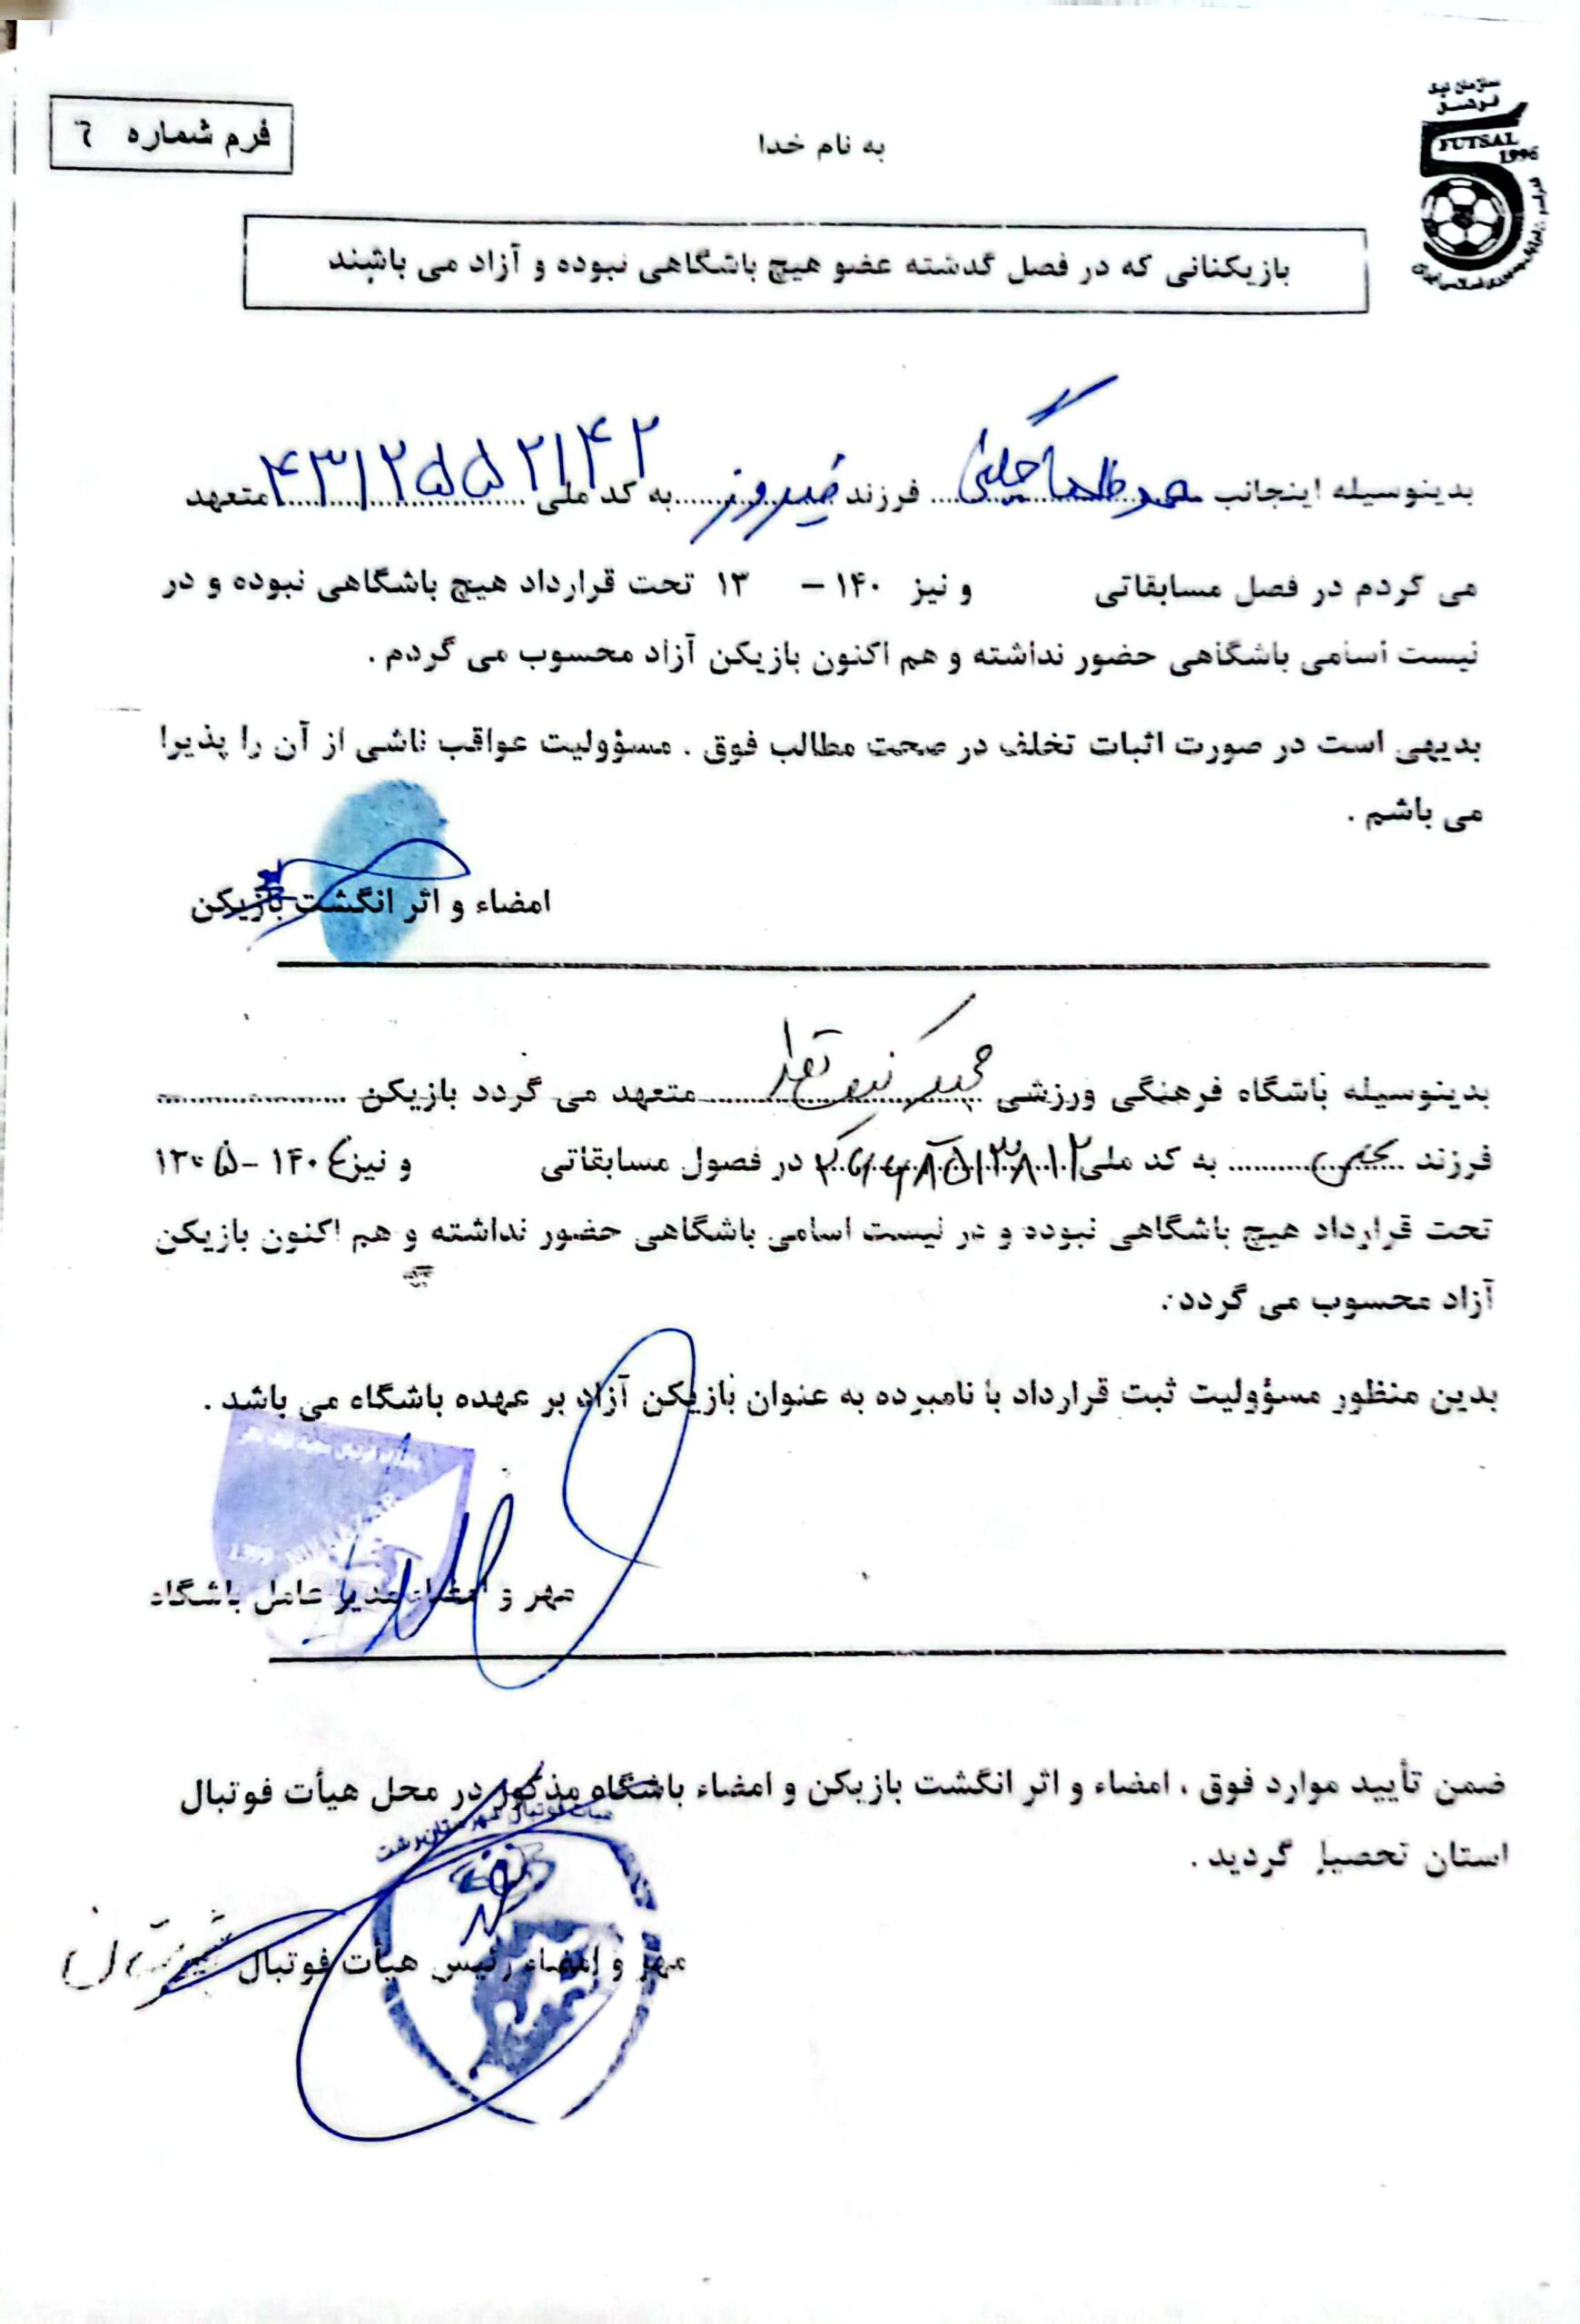 فرم شماره ٦
به نام خدا
FUTSAL
1996
بازیکنانی که در فصل گذشته عضو هیچ باشگاهی نبوده و آزاد می باشند
بدینوسیله اینجانب فرزند فیروز به کد ملی ۴۳۱۲۵۵۲۱۴۲ متعهد
می کردم در فصل مسابقاتی و نیز ۱۴۰ – ۱۳ تحت قرارداد هیچ باشگاهی نبوده و در
نیست اسامی باشگاهی حضور نداشته و هم اکنون بازیکن آزاد محسوب می گردم .
بدیهی است در صورت اثبات تخلف در صحت مطالب فوق . مسؤولیت عواقب ناشی از آن را پذیرا
می باشم .
امضاء و اثر انگشت بازیکن
بدینوسیله باشگاه فرهنگی ورزشی متعهد می گردد بازیکن
فرزند به کد ملی در فصول مسابقاتی و نیز
تحت قرارداد هیچ باشگاهی نبوده و در نیست اسامی باشگاهی حضور نداشته و هم اکنون بازیکن
آزاد محسوب می گردد .
بدین منظور مسؤولیت ثبت قرارداد با نامبرده به عنوان بازیکن آزاد بر عهده باشگاه می باشد .
مهر و امضاء مدیر عامل باشگاه
ضمن تأیید موارد فوق ، امضاء و اثر انگشت بازیکن و امضاء باشگاه مذکور در محل هیأت فوتبال
استان تحصیل گردید .
هیات فوتبال شهرستان رشت
مهر و امضاء رئیس هیأت فوتبال